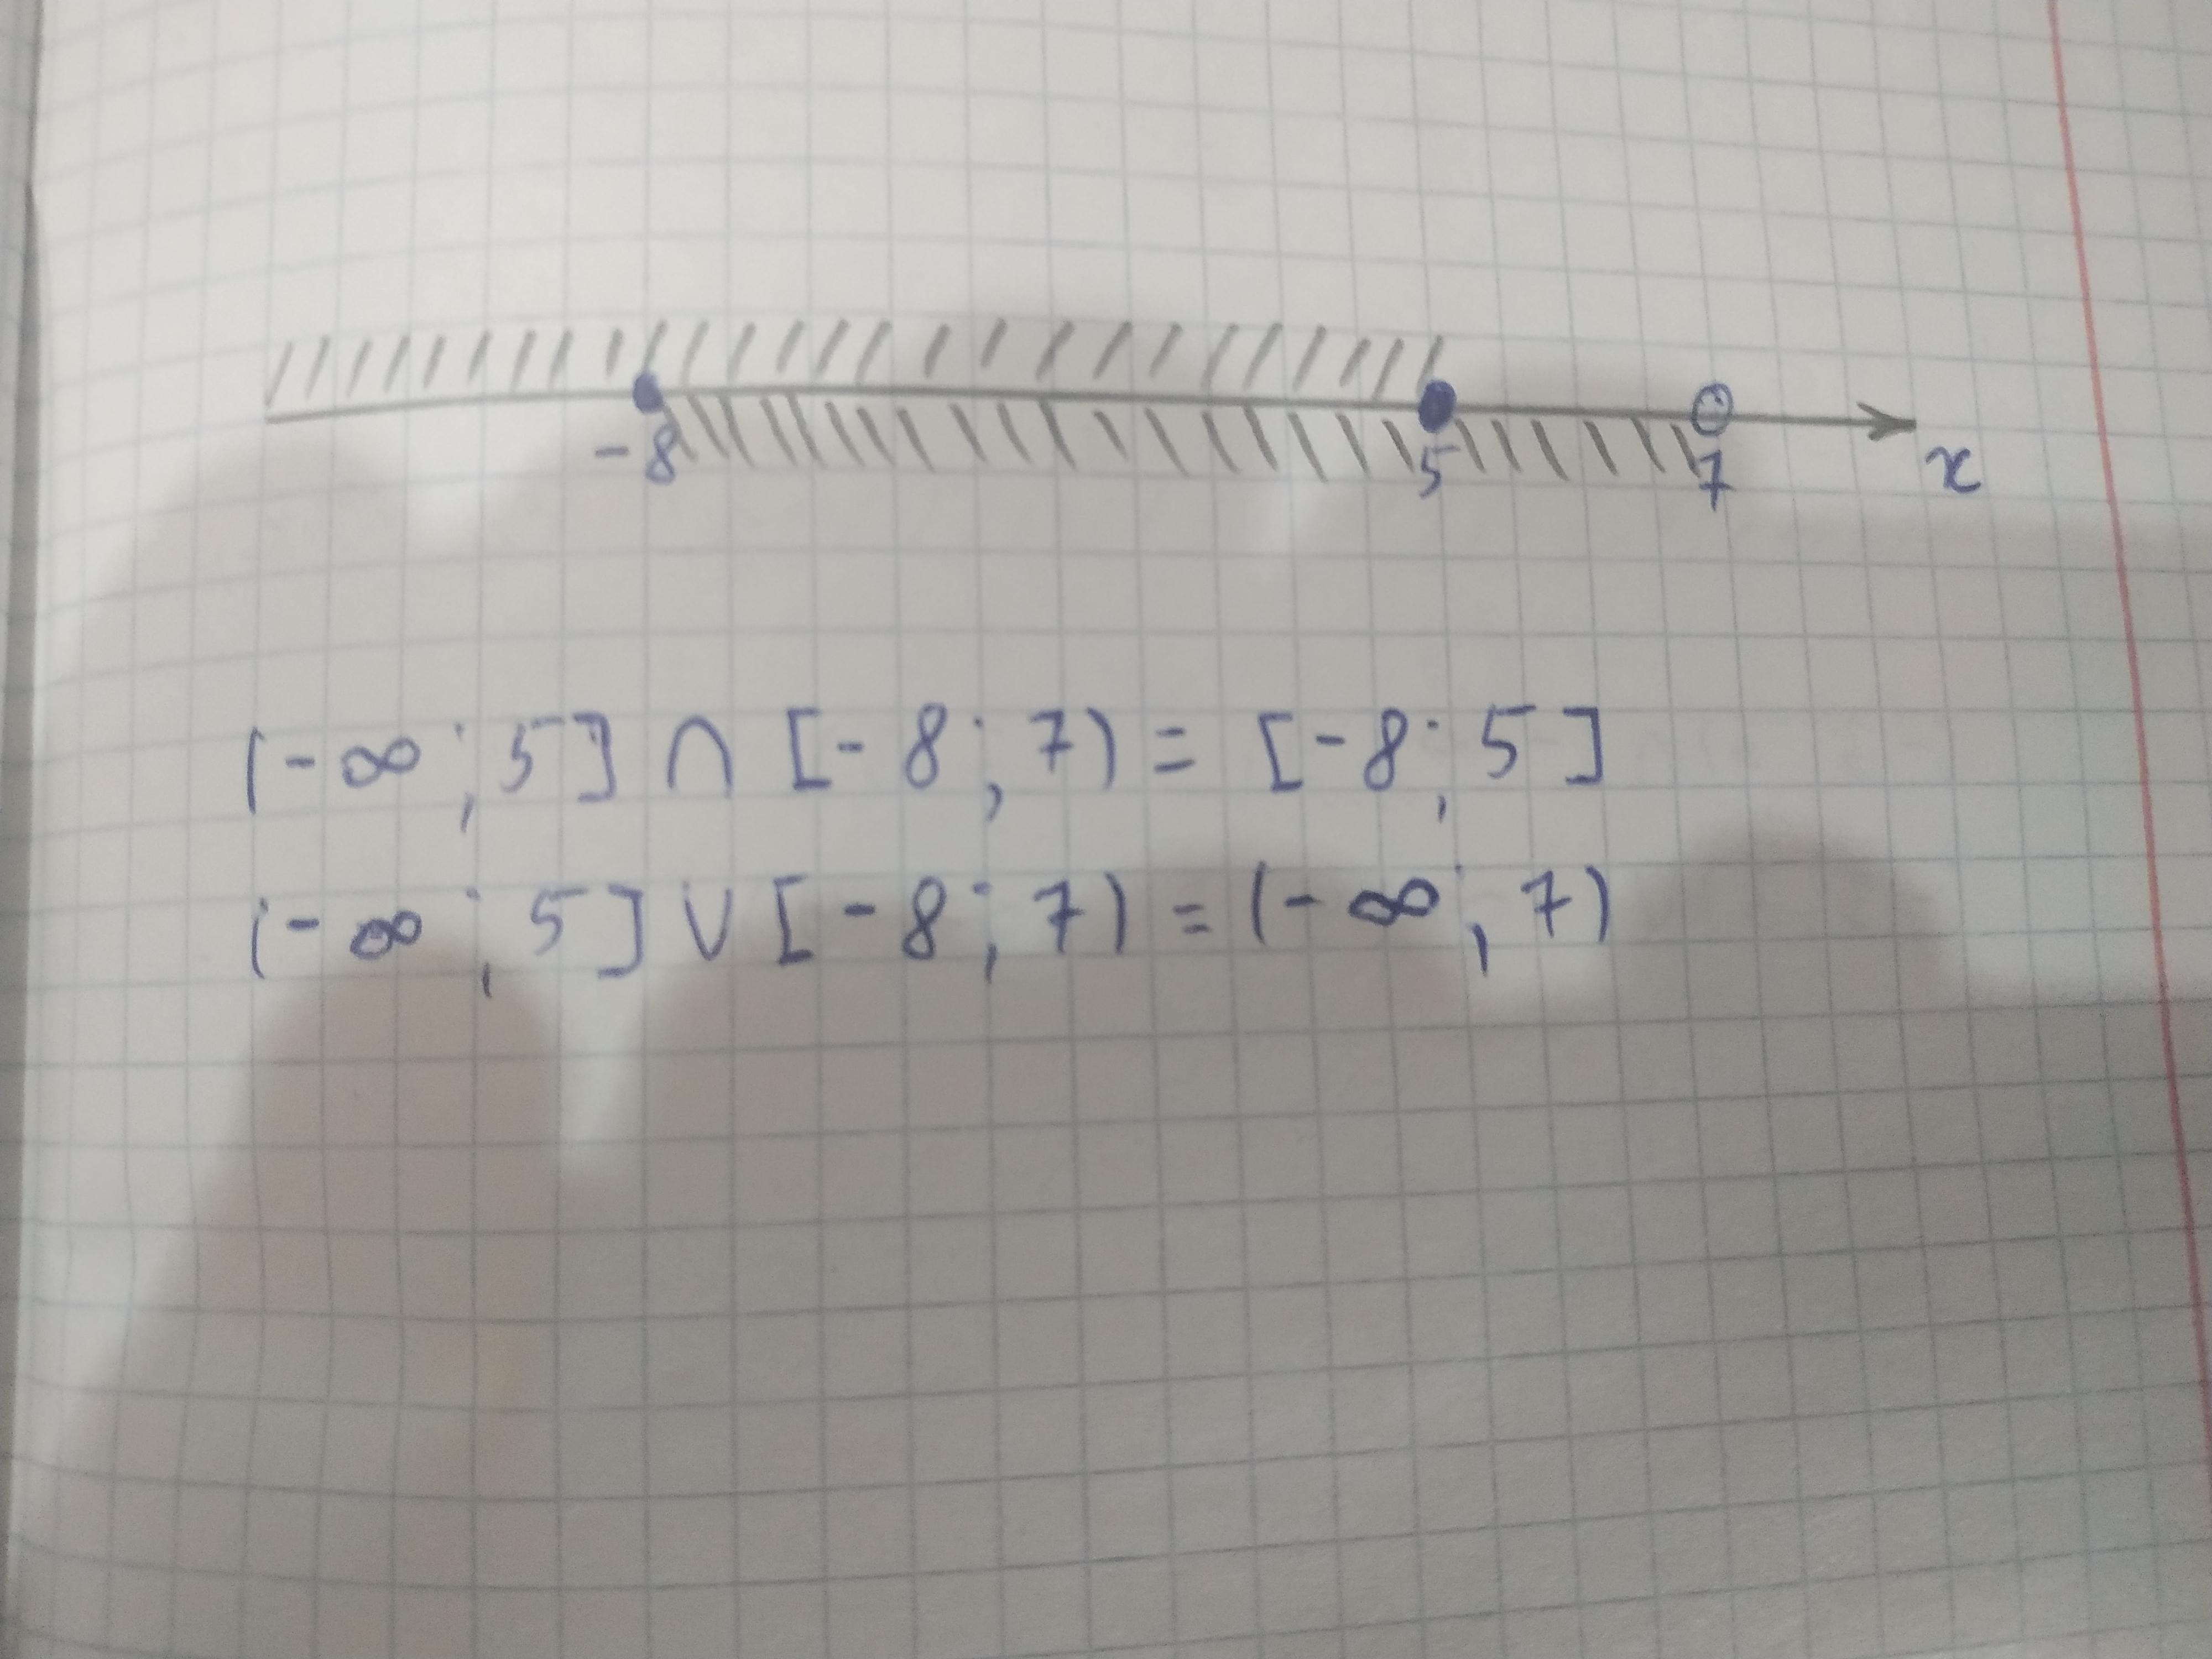 -8 5 7 x
(-∞; 5] ∩ [-8; 7) = [-8; 5]
(-∞; 5] ∪ [-8; 7) = (-∞; 7)